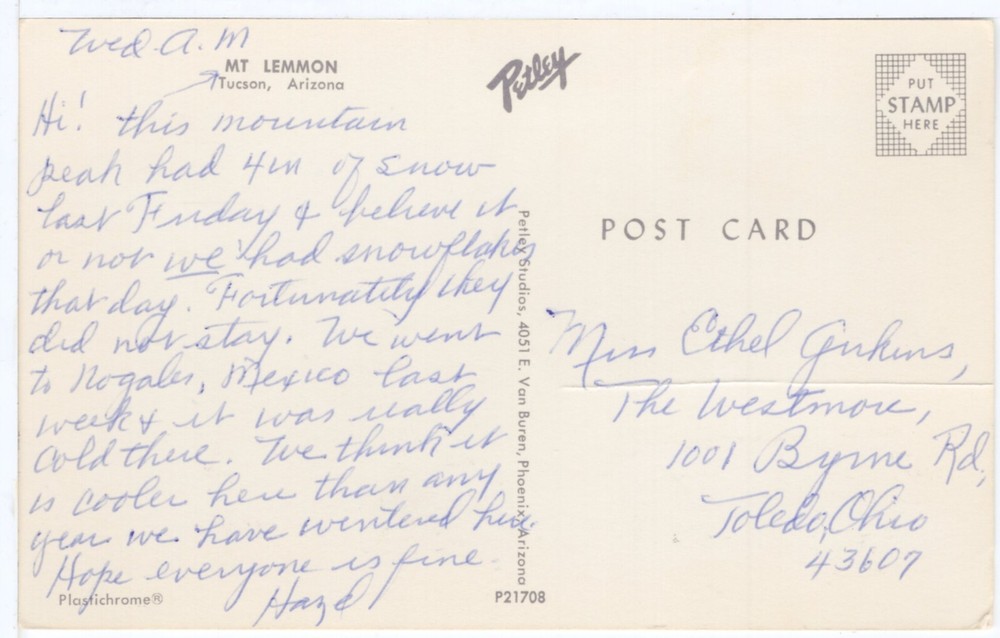 Wed A.M
MT LEMMON
Tucson, Arizona
Hi! this mountain
peak had 4 in of snow
last Friday & believe it
or not we had snowflakes
that day. Fortunately they
did not stay. We went
to Nogales, Mexico last
week & it was really
cold there. We think it
is cooler here than any
year we have wintered here.
Hope everyone is fine.
Hazel
Plastichrome®
Petley
Petley Studios, 4051 E. Van Buren, Phoenix, Arizona
P21708
PUT
STAMP
HERE
POST CARD
Miss Ethel
The Westmore,
1001 Byrne Rd,
Toledo, Ohio
43607